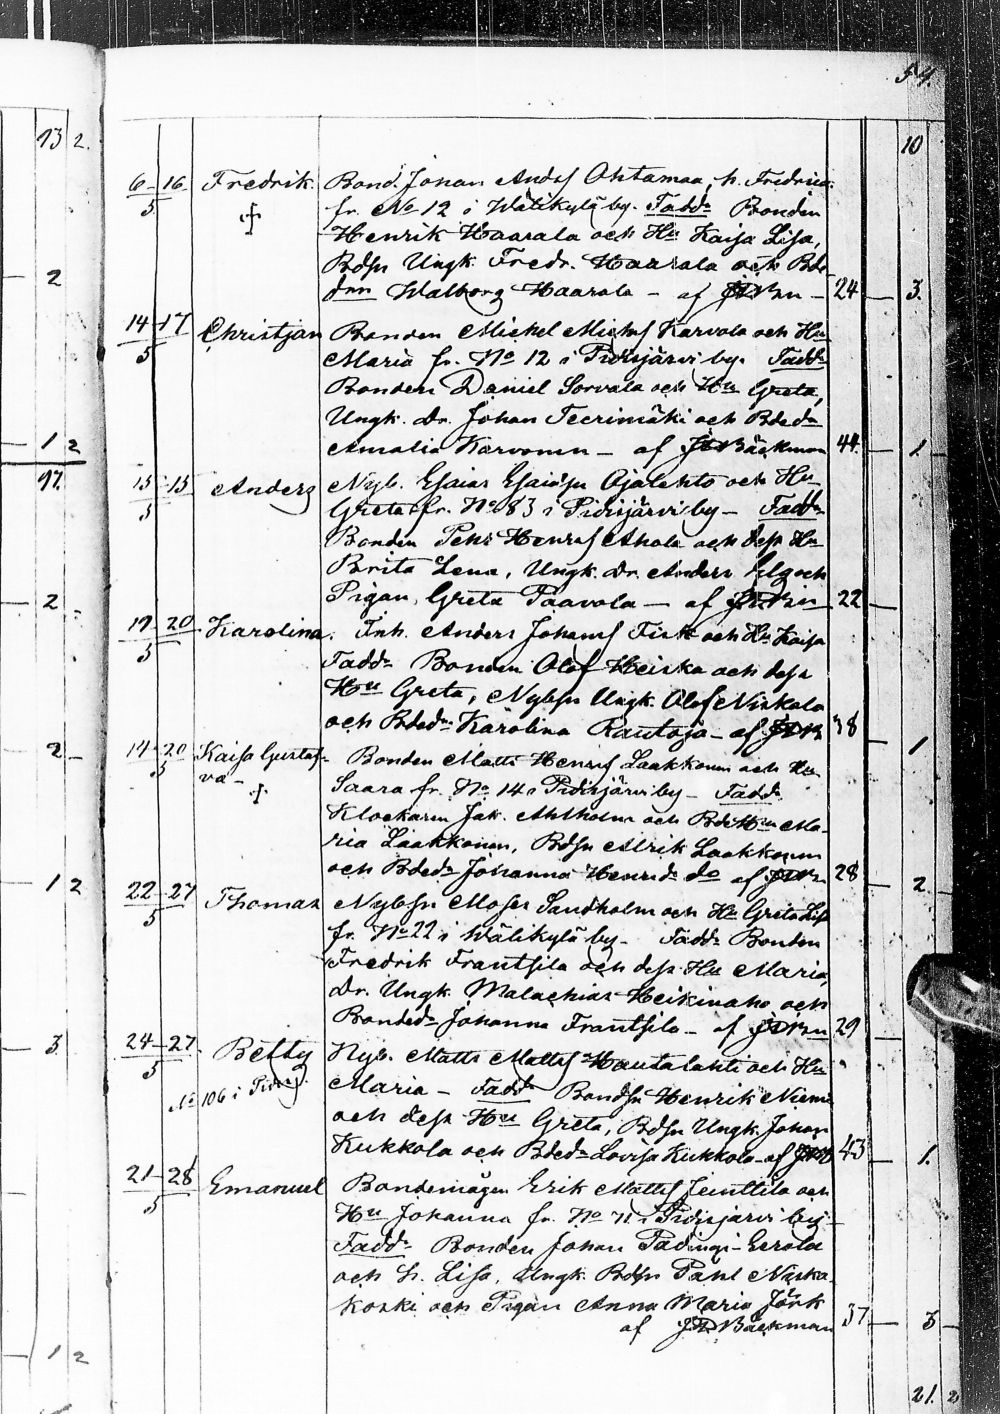 54.
13 2.
10
6-16 Fredrik Bond. Johan Andsf Ohtamaa, h. Fredrica
5 fr. No 12 i Wälikylä by. Fadd: Bonden
Henrik Haarala och Hu Kaisa Lisa,
2 Bdsn Ungk. Fredr. Haarala och Bde-
drn Walborg Haarala - af JDBn - 24 3.
14-17 Christjan Bonden Michel Michsf Karvola och Hu
5 Maria fr. No 12 i Pidisjärvi by. Fadd:
Bonden Daniel Sorvala och Hu Greta,
Ungk. Dr. Johan Teerimäki och Bdedr
1 2 Amalia Karvonen - af JDBäckman 44. 1.
17.
15-15 Anders Nyb. Esaias Esaiæsn Ojalehto och Hu
5 Greta fr. No 83 i Pidisjärvi by - Fadd:
Bonden Pehr Henrsf Ahola och dess Hu
Brita Lena, Ungk. Dr. Anders Elg och
2 - Pigan, Greta Paavola - af JDBn 22
19-20 Karolina. Inh. Anders Johansf Fisk och Hu Kaisa
5 Fadd: Bonden Olof Heiska och dess
Hu Greta, Nybsn Ungk. Olof Niskala
och Bdedr Karolina Rautoja - af JDB 38
2 - 1
14-20 Kaisa Gustaf- Bonden Matts Henrsf Laakkonen och Hu
5 va - Saara fr. No 14 i Pidisjärvi by - Fadd:
Klockaren Jak. Ahlholm och Bde Hu Ma-
ria Laakkonen, Bdsn Alrik Laakkonen
1 2 och Bdedr Johanna Henrdr do af JDBn 28 2
22-27 Thomas Nybsn Moses Sandholm och Hu Greta Lisa
5 fr. No 22 i Wälikylä by - Fadd: Bonden
Fredrik Frantsila och dess Hu Maria,
Dr. Ungk. Malachias Heikinaho och
Bondedr Johanna Frantsila - af JDBn 29
3
24-27 Betty Nyb. Matts Mattsf Hautalahti och Hu
5 No 106 i Pidisj. Maria - Fadd: Bondsn Henrik Niemi
och dess Hu Greta, Bdsn Ungk. Johan
Kukkola och Bdedr Lovisa Kukkola - af JDB 43 1.
21-28 Emanuel Bondemågen Erik Mattsf Junttila och
5 Hu Johanna fr. No 71 i Pidisjärvi by -
Fadd: Bonden Johan Padingi-Eerola
och h. Lisa, Ungk. Bdsn Pahl Niska-
koski och Pigan Anna Maria Jönk
af JDBäckman 37 3
1 2
21. 2